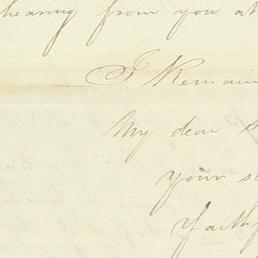 hearing from you at
I Remain
My dear S
your s
Faithf